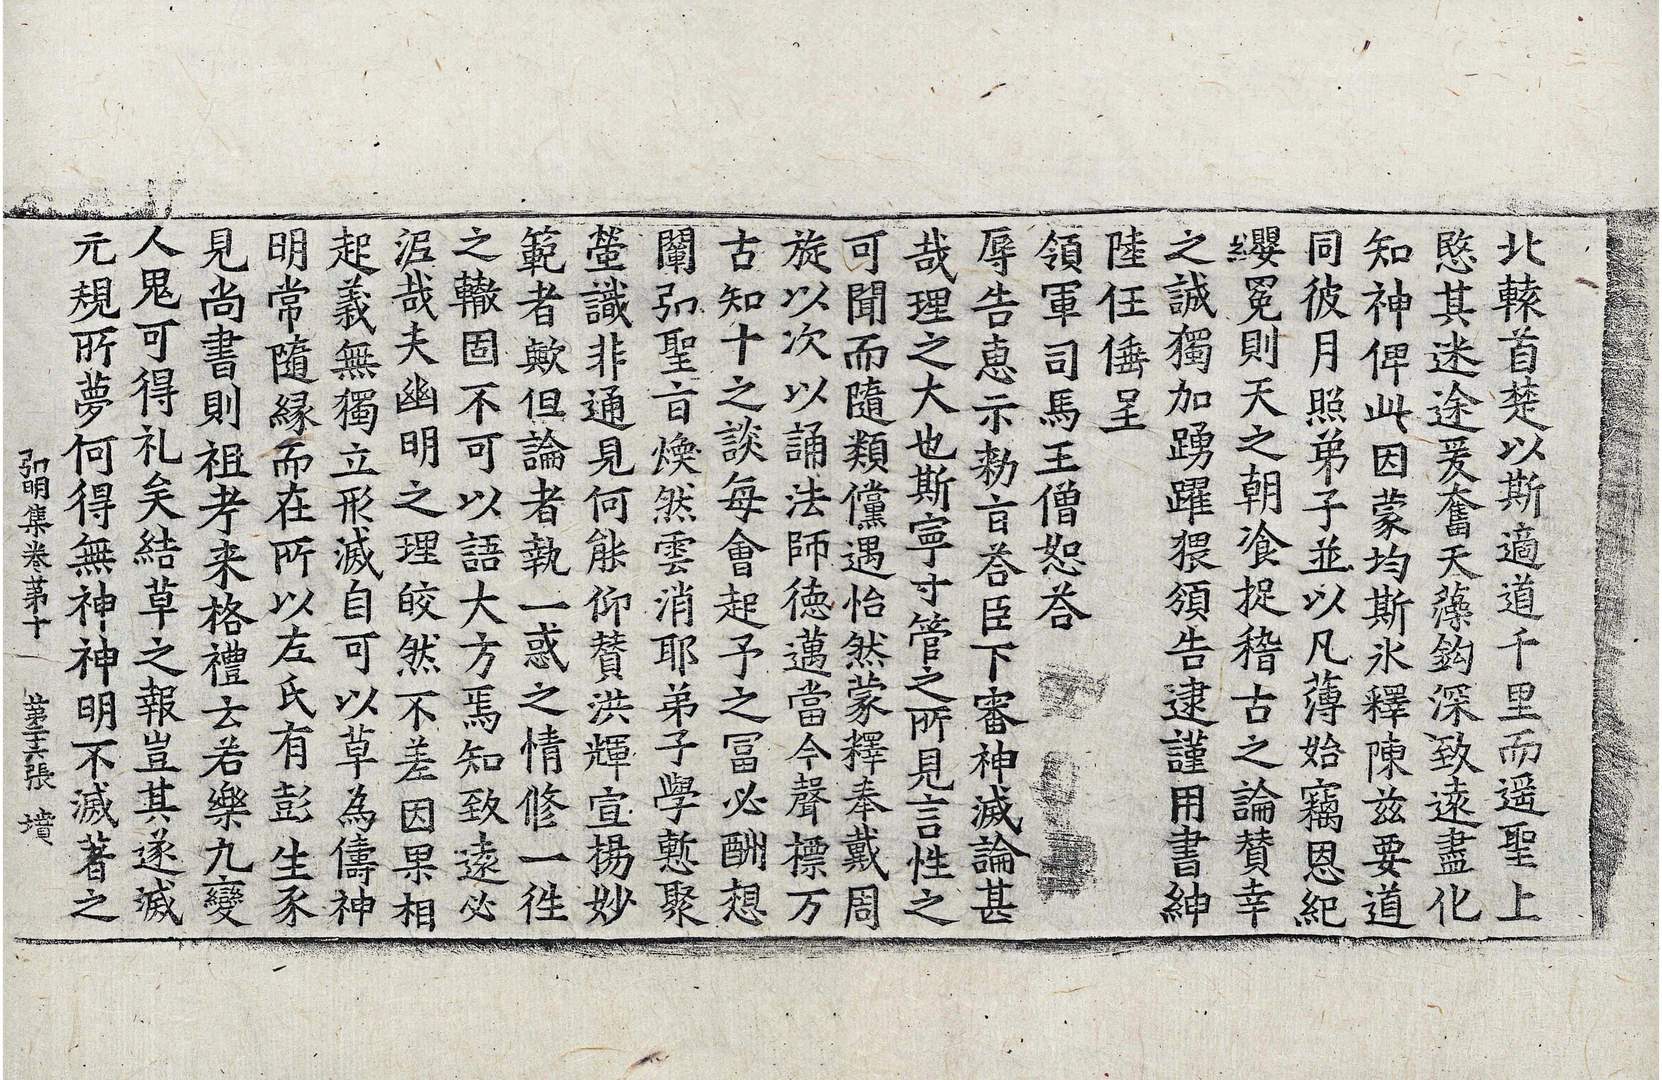 北轅首楚以斯適道千里而遥聖上
愍其迷途爰奮天藻鈎深致遠盡化
知神俾此因蒙均斯氷釋陳兹要道
同彼月照弟子並以凡薄始竊恩紀
纓冕則天之朝飡捉稽古之論賛幸
之誠獨加踴躍猥須告逮謹用書紳
陸任倕呈
領軍司馬王僧恕荅
辱告惠示勑旨荅臣下審神滅論甚
哉理之大也斯寧寸管之所見言性之
可聞而隨類儻遇怡然蒙釋奉戴周
旋以次以誦法師徳邁當今聲標万
古知十之談每會起予之冨必酬想
闡弘聖旨煥然雲消耶弟子學慙聚
螢識非通見何能仰賛洪輝宣揚妙
範者歟但論者執一惑之情修一徃
之轍固不可以語大方焉知致遠必
泥哉夫幽明之理皎然不差因果相
起義無獨立形滅自可以草為儔神
明常隨縁而在所以左氏有彭生豕
見尚書則祖考来格禮云若樂九變
人鬼可得礼矣結草之報豈其遂滅
元規所夢何得無神神明不滅著之
弘明集卷苐十　苐三十六張　墳